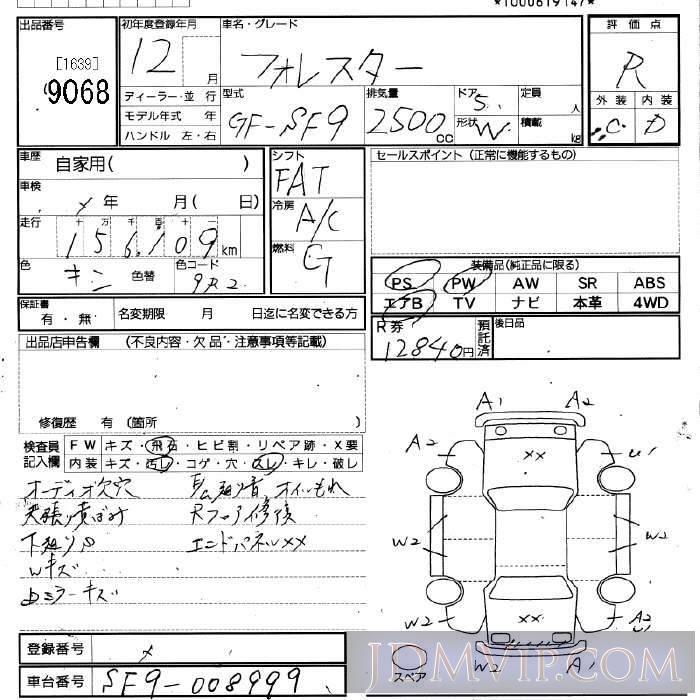 *1000619147*
出品番号
[1639]
9068
初年度登録年月
12 月
車名・グレード
フォレスター
評価点
R
外装 内装
C D
ディーラー・並行
モデル年式 年
ハンドル 左・右
型式
GF-SF9
排気量
2500cc
ドア 5
形状 W
定員 人
積載 kg
車歴 自家用( )
車検 年 月( 日)
走行 十 万 千 百 十 一
156,109 km
色 キン 色替 色コード 9R2
シフト
FAT
冷房
A/C
燃料
G
セールスポイント(正常に機能するもの)
装備品(純正品に限る)
PS PW AW SR ABS
エアB TV ナビ 本革 4WD
保証書 有・無 名変期限 月 日迄に名変できる方
R券 12840円 預託済 後日品
出品店申告欄 (不良内容・欠品・注意事項等記載)
修復歴 有 (箇所 )
検査員記入欄
FW キズ・飛石・ヒビ割・リペア跡・X要
内装 キズ・汚レ・コゲ・穴・スレ・キレ・破レ
オーディオ欠穴
オイルもれ
Rフロア修復
エンドパネルXX
Wキズ
ミラーキズ
A1 A2
A2 U1
XX
W2 W2
XX
W2 A2
W2 A1
スペア
登録番号
車台番号 SF9-008999
JDMVIP.COM